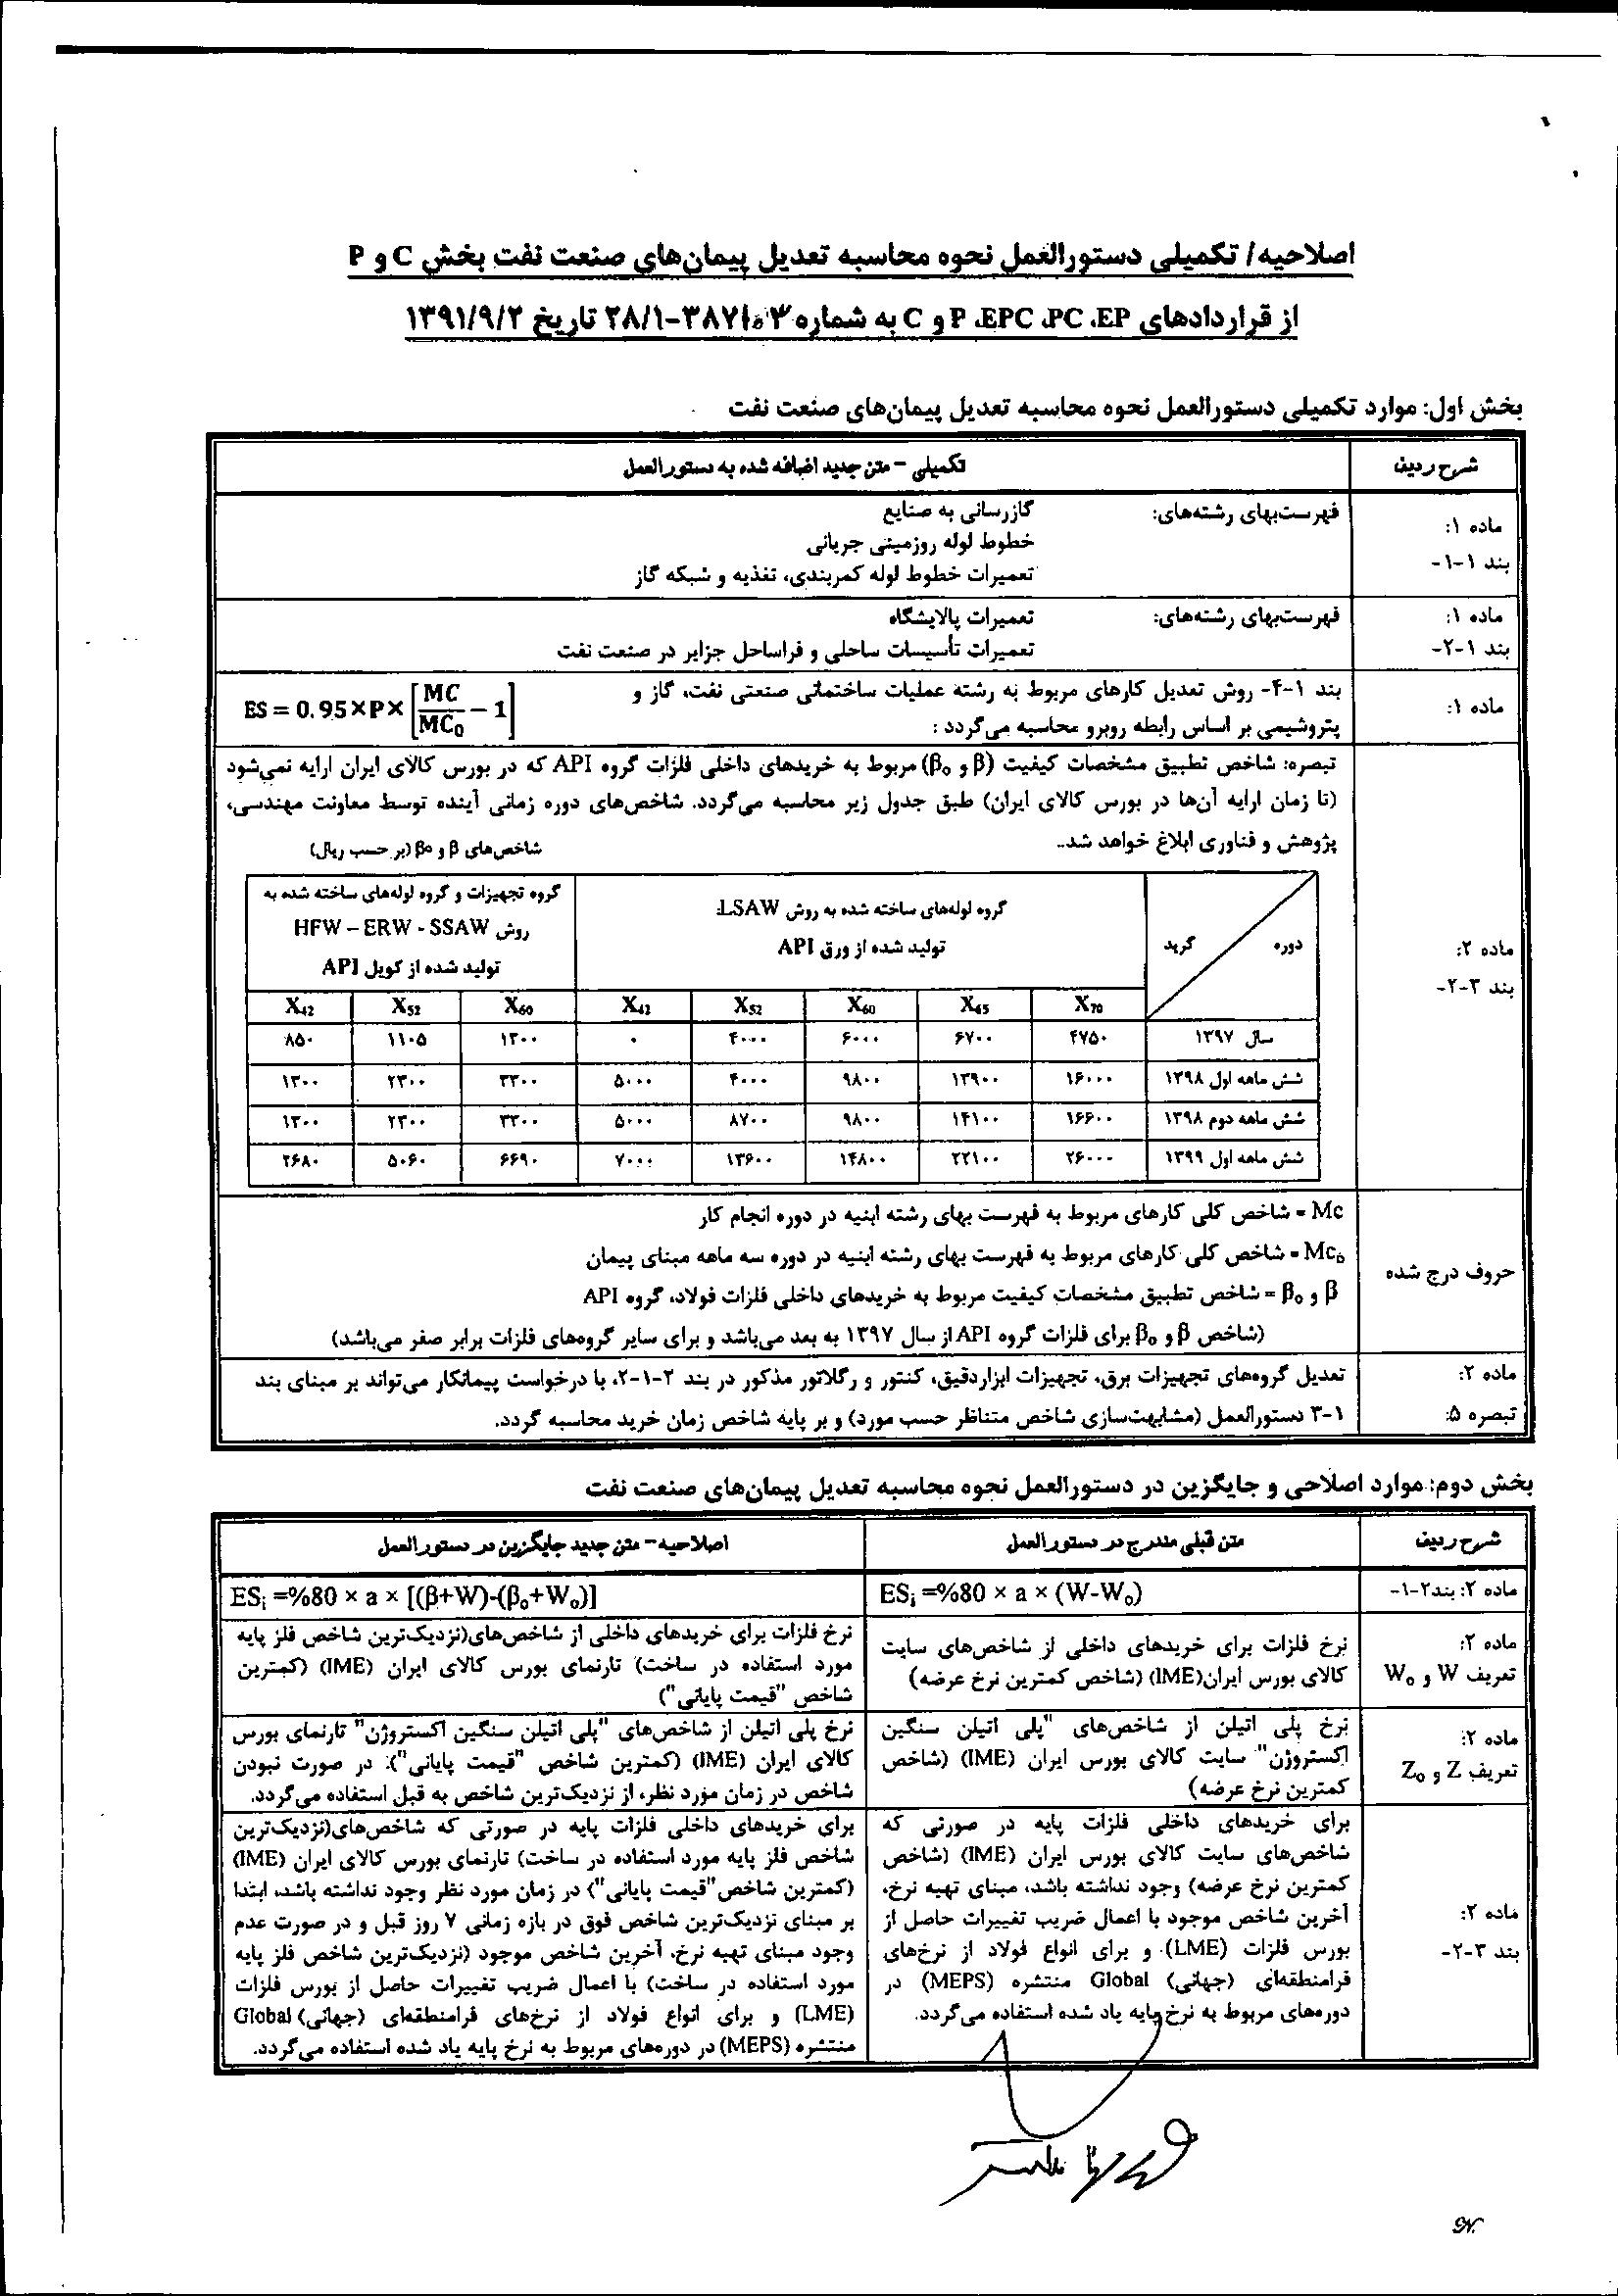 اصلاحیه/ تکمیلی دستورالعمل نحوه محاسبه تعدیل پیمان‌های صنعت نفت بخش C و P
از قراردادهای P ،EPC ،PC ،EP و C به شماره تاریخ ۱۳۹۱/۹/۲
بخش اول: موارد تکمیلی دستورالعمل نحوه محاسبه تعدیل پیمان‌های صنعت نفت
شرح ردیف
تکمیلی - متن جدید اضافه شده به دستورالعمل
ماده ۱:
بند ۱-۱-
فهرست‌بهای رشته‌های:
گازرسانی به صنایع
خطوط لوله روزمینی جریانی
تعمیرات خطوط لوله کمربندی، تغذیه و شبکه گاز
ماده ۱:
بند ۱-۲-
فهرست‌بهای رشته‌های:
تعمیرات پالایشگاه
تعمیرات تأسیسات ساحلی و فراساحل جزایر در صنعت نفت
ماده ۱:
بند ۱-۴- روش تعدیل کارهای مربوط به رشته عملیات ساختمانی صنعتی نفت، گاز و
پتروشیمی بر اساس رابطه روبرو محاسبه می‌گردد :
ES = 0.95×P×[MC/MC₀ − 1]
ماده ۲:
بند ۳-۲-
تبصره: شاخص تطبیق مشخصات کیفیت (β و β₀) مربوط به خریدهای داخلی فلزات گروه API که در بورس کالای ایران ارایه نمی‌شود
(تا زمان ارایه آن‌ها در بورس کالای ایران) طبق جدول زیر محاسبه می‌گردد. شاخص‌های دوره زمانی آینده توسط معاونت مهندسی،
پژوهش و فناوری ابلاغ خواهد شد..
شاخص‌های β و β₀ (بر حسب ریال)
دوره
گرید
گروه لوله‌های ساخته شده به روش LSAW:
تولید شده از ورق API
گروه تجهیزات و گروه لوله‌های ساخته شده به
روش HFW – ERW - SSAW
تولید شده از کویل API
X₇₀ X₆₅ X₆₀ X₅₂ X₄₂ X₆₀ X₅₂ X₄₂
سال ۱۳۹۷ ۴۷۵۰ ۶۷۰۰ ۶۰۰۰ ۴۰۰۰ ۰ ۱۳۰۰ ۱۱۰۵ ۸۵۰
شش ماهه اول ۱۳۹۸ ۱۶۰۰۰ ۱۳۹۰۰ ۹۸۰۰ ۴۰۰۰ ۵۰۰۰ ۳۳۰۰ ۲۳۰۰ ۱۳۰۰
شش ماهه دوم ۱۳۹۸ ۱۶۶۰۰ ۱۴۱۰۰ ۹۸۰۰ ۸۷۰۰ ۵۰۰۰ ۳۳۰۰ ۲۳۰۰ ۱۳۰۰
شش ماهه اول ۱۳۹۹ ۲۶۰۰۰ ۲۲۱۰۰ ۱۴۸۰۰ ۱۳۶۰۰ ۷۰۰۰ ۶۶۹۰ ۵۰۶۰ ۲۶۸۰
حروف درج شده
Mc = شاخص کلی کارهای مربوط به فهرست بهای رشته ابنیه در دوره انجام کار
Mc₀ = شاخص کلی کارهای مربوط به فهرست بهای رشته ابنیه در دوره سه ماهه مبنای پیمان
β و β₀ = شاخص تطبیق مشخصات کیفیت مربوط به خریدهای داخلی فلزات فولاد، گروه API
(شاخص β و β₀ برای فلزات گروه API از سال ۱۳۹۷ به بعد می‌باشد و برای سایر گروه‌های فلزات برابر صفر می‌باشد)
ماده ۲:
تبصره ۵:
تعدیل گروه‌های تجهیزات برق، تجهیزات ابزاردقیق، کنتور و رگلاتور مذکور در بند ۲-۱-۲، با درخواست پیمانکار می‌تواند بر مبنای بند
۳-۱ دستورالعمل (مشابهت‌سازی شاخص متناظر حسب مورد) و بر پایه شاخص زمان خرید محاسبه گردد.
بخش دوم: موارد اصلاحی و جایگزین در دستورالعمل نحوه محاسبه تعدیل پیمان‌های صنعت نفت
شرح ردیف
متن قبلی مندرج در دستورالعمل
اصلاحیه- متن جدید جایگزین در دستورالعمل
ماده ۲: بند۲-۱-
ESᵢ =%80 × a × (W-W₀)
ESᵢ =%80 × a × [(β+W)-(β₀+W₀)]
ماده ۲:
تعریف W و W₀
نرخ فلزات برای خریدهای داخلی از شاخص‌های سایت
کالای بورس ایران(IME) (شاخص کمترین نرخ عرضه)
نرخ فلزات برای خریدهای داخلی از شاخص‌های(نزدیک‌ترین شاخص فلز پایه
مورد استفاده در ساخت) تارنمای بورس کالای ایران (IME) (کمترین
شاخص "قیمت پایانی")
ماده ۲:
تعریف Z و Z₀
نرخ پلی اتیلن از شاخص‌های "پلی اتیلن سنگین
اکستروژن" سایت کالای بورس ایران (IME) (شاخص
کمترین نرخ عرضه)
نرخ پلی اتیلن از شاخص‌های "پلی اتیلن سنگین اکستروژن" تارنمای بورس
کالای ایران (IME) (کمترین شاخص "قیمت پایانی"). در صورت نبودن
شاخص در زمان مورد نظر، از نزدیک‌ترین شاخص به قبل استفاده می‌گردد.
ماده ۲:
بند ۳-۲-
برای خریدهای داخلی فلزات پایه در صورتی که
شاخص‌های سایت کالای بورس ایران (IME) (شاخص
کمترین نرخ عرضه) وجود نداشته باشد، مبنای تهیه نرخ،
آخرین شاخص موجود با اعمال ضریب تغییرات حاصل از
بورس فلزات (LME) و برای انواع فولاد از نرخ‌های
فرامنطقه‌ای (جهانی) Global منتشره (MEPS) در
دوره‌های مربوط به نرخ پایه یاد شده استفاده می‌گردد.
برای خریدهای داخلی فلزات پایه در صورتی که شاخص‌های(نزدیک‌ترین
شاخص فلز پایه مورد استفاده در ساخت) تارنمای بورس کالای ایران (IME)
(کمترین شاخص"قیمت پایانی") در زمان مورد نظر وجود نداشته باشد، ابتدا
بر مبنای نزدیک‌ترین شاخص فوق در بازه زمانی ۷ روز قبل و در صورت عدم
وجود مبنای تهیه نرخ، آخرین شاخص موجود (نزدیک‌ترین شاخص فلز پایه
مورد استفاده در ساخت) با اعمال ضریب تغییرات حاصل از بورس فلزات
(LME) و برای انواع فولاد از نرخ‌های فرامنطقه‌ای (جهانی) Global
منتشره (MEPS) در دوره‌های مربوط به نرخ پایه یاد شده استفاده می‌گردد.